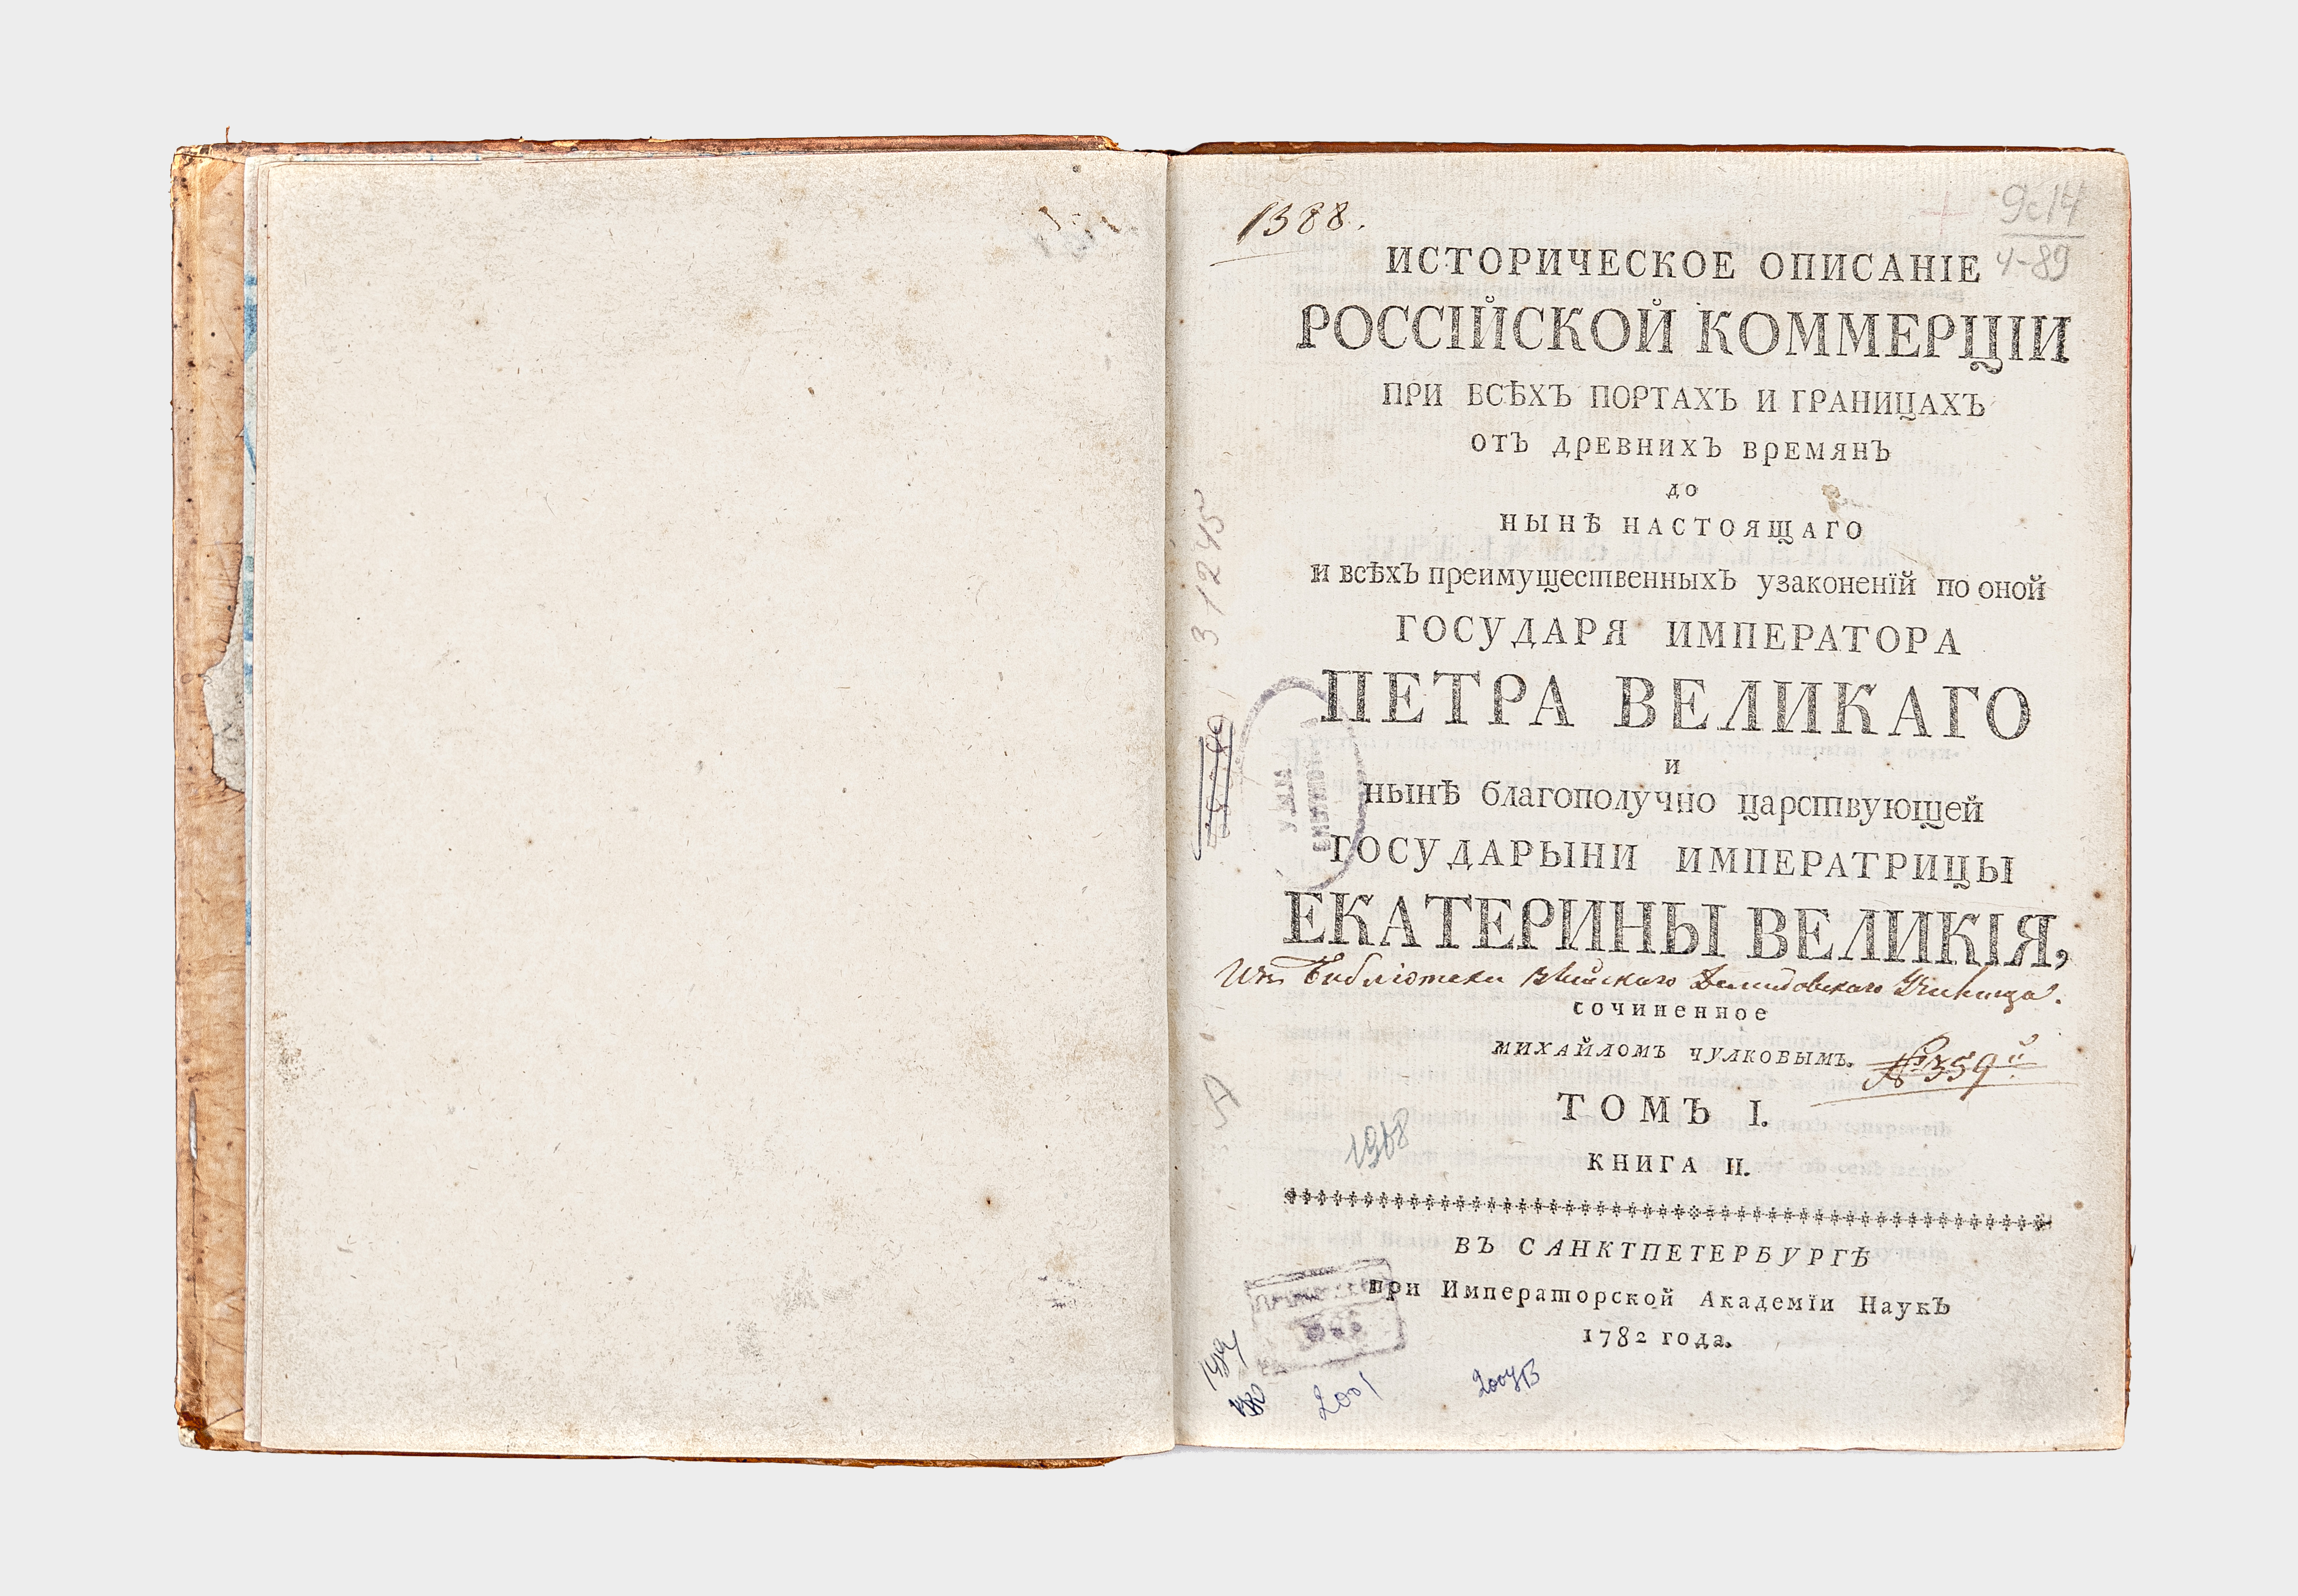 1388.
9с14
4-89
ИСТОРИЧЕСКОЕ ОПИСАНІЕ
РОССІЙСКОЙ КОММЕРЦІИ
ПРИ ВСѢХЪ ПОРТАХЪ И ГРАНИЦАХЪ
ОТЪ ДРЕВНИХЪ ВРЕМЯНЪ
ДО
НЫНѢ НАСТОЯЩАГО
и всѣхъ преимущественныхъ узаконенїй по оной
ГОСУДАРЯ ИМПЕРАТОРА
ПЕТРА ВЕЛИКАГО
И
нынѣ благополучно царствующей
ГОСУДАРЫНИ ИМПЕРАТРИЦЫ
ЕКАТЕРИНЫ ВЕЛИКІЯ,
Изъ Библіотеки Демидовскаго Училища.
сочиненное
МИХАЙЛОМЪ ЧУЛКОВЫМЪ.
№ 359й
ТОМЪ I.
КНИГА II.
1968
ВЪ САНКТПЕТЕРБУРГѢ
при Императорской Академїи Наукъ
1782 года.
2001
31245